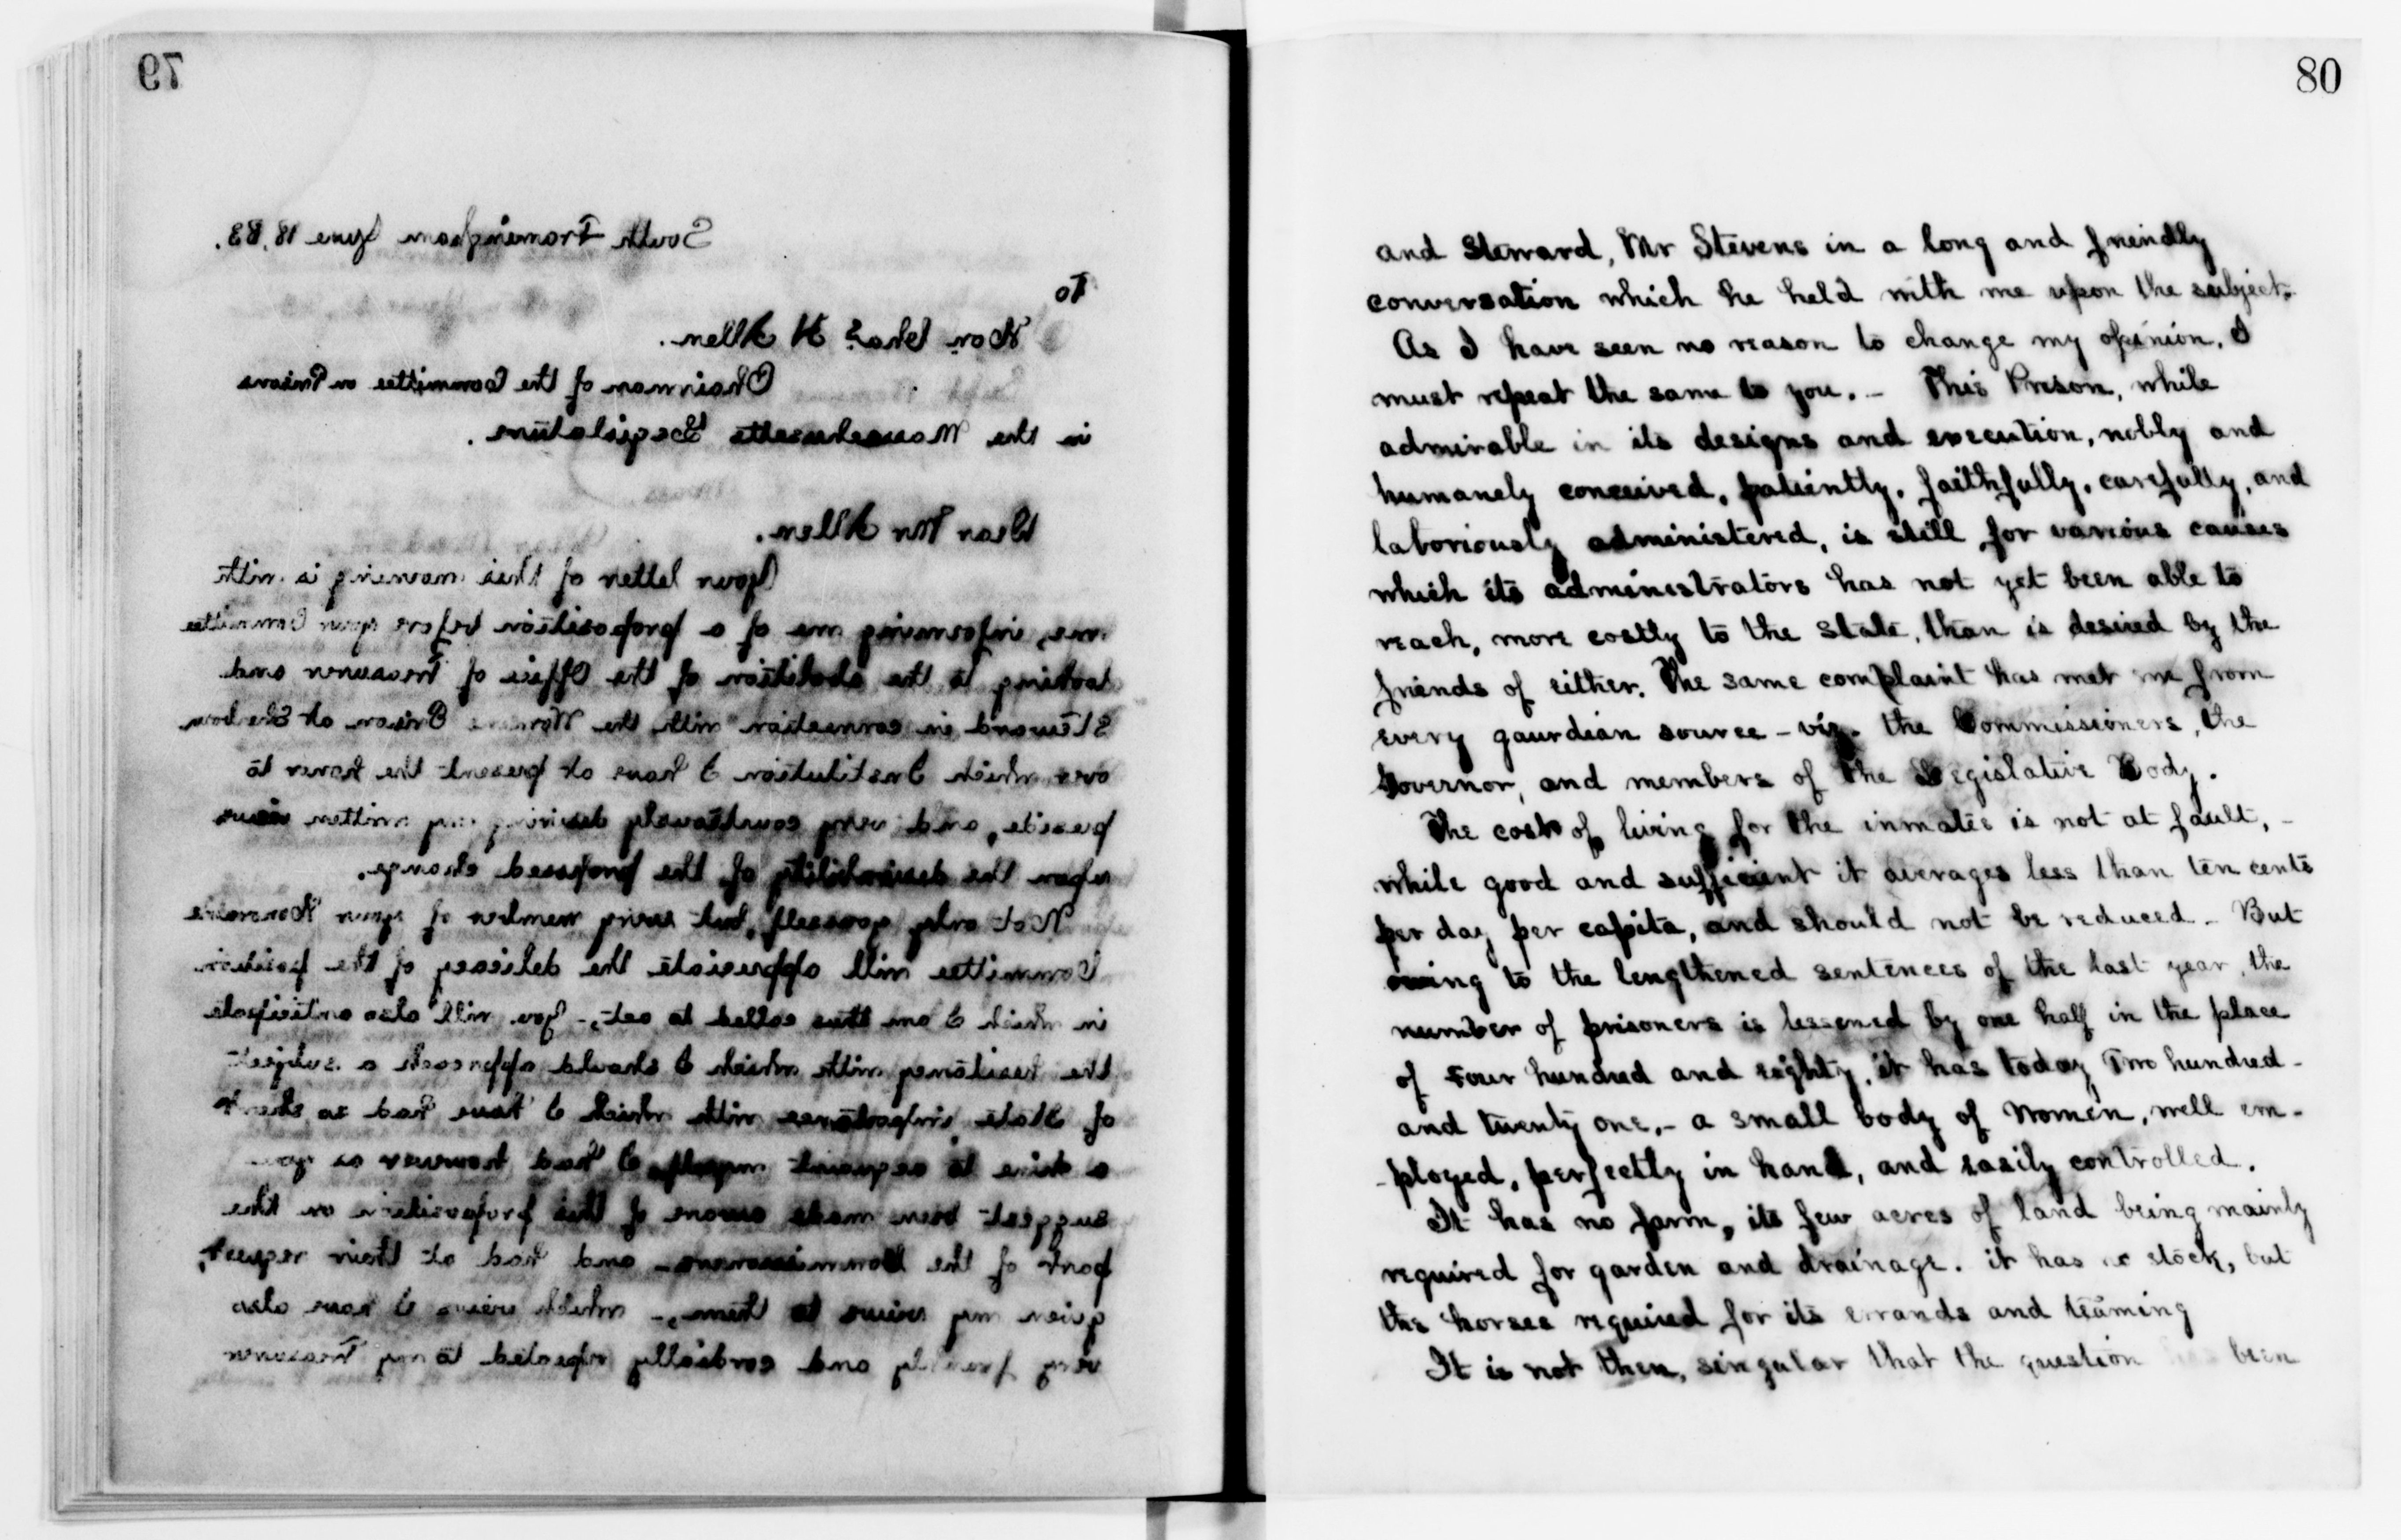 79
South Framingham June 18. 83.
To
Hon. Chas. H Allen.
Chairman of the Committee on Prisons
in the Massachusetts Legislature.
Dear Mr Allen.
Your letter of this morning is with
me, informing me of a proposition before your Committee
looking to the abolition of the Office of Treasurer and
Steward in connection with the Womens Prison at Sherborn
over which Institution I have at present the honor to
preside, and very courteously desiring my written views
upon the desirability of the proposed change.
Not only yourself, but every member of your Honorable
Committee will appreciate the delicacy of the position
in which I am thus called to act,- You will also anticipate
the hesitancy with which I should approach a subject
of State importance with which I have had so short
a time to acquaint myself. I had however as you
suggest been made aware of this proposition on the
part of the Commissioners - and had at their request,
given my views to them,- which views I have also
very frankly and cordially repeated to my Treasurer
80
and Steward, Mr Stevens in a long and freindly
conversation which he held with me upon the subject.
As I have seen no reason to change my opinion, I
must repeat the same to you. - This Prison, while
admirable in its designs and execution, nobly and
humanely conceived, patiently, faithfully, carefully, and
laboriously administered, is still for various causes
which its administrators has not yet been able to
reach, more costly to the State, than is desired by the
friends of either. The same complaint has met me from
every gaurdian source - viz. the Commissioners, the
Governor, and members of the Legislative Body.
The cost of living for the inmates is not at fault, -
while good and sufficient it averages less than ten cents
per day per capita, and should not be reduced - But
owing to the lengthened sentences of the last year, the
number of prisoners is lessened by one half in the place
of Four hundred and eighty, it has today Two hundred -
and twenty one, - a small body of Women, well em-
-ployed, perfectly in hand, and easily controlled.
It has no farm, its few acres of land being mainly
required for garden and drainage. it has no stock, but
the horses required for its errands and teaming
It is not then, singular that the question been